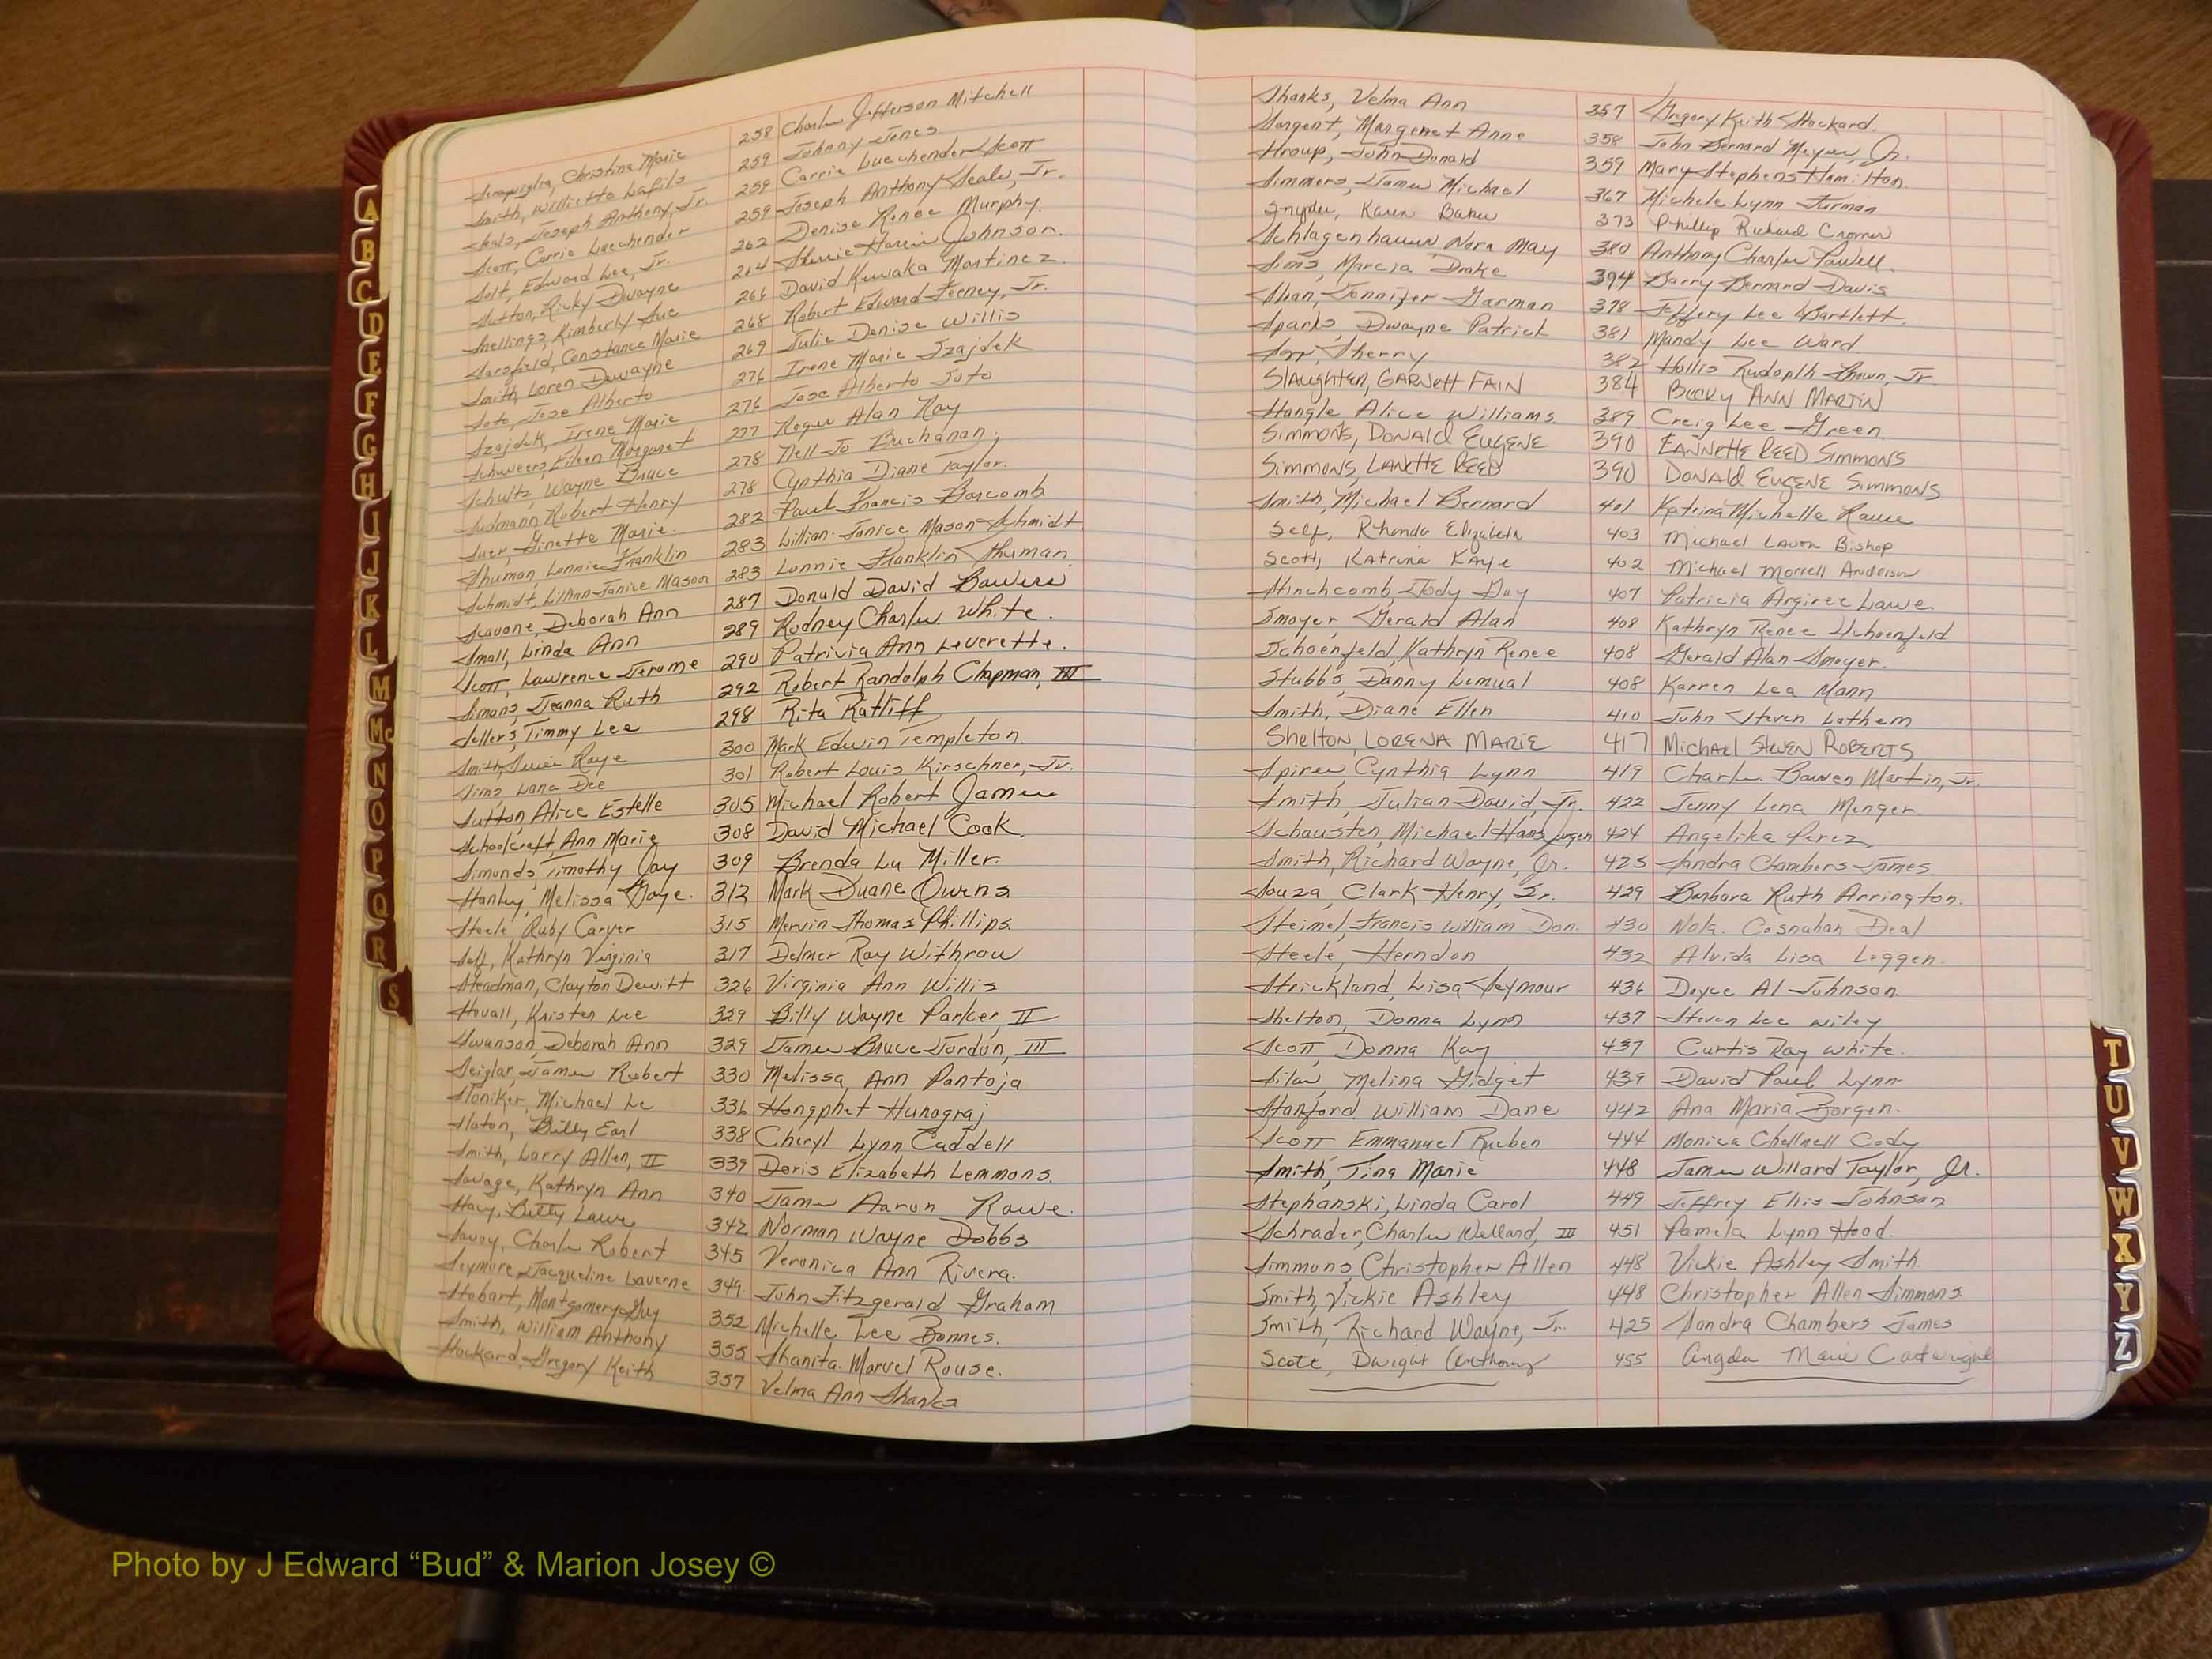 Christine Marie 258 Charles Jefferson Mitchell
Smith, Willietta Lafils 259 Johnny Jones
Seals, Joseph Anthony, Jr. 259 Carrie Luechender Scott
Scott, Carrie Luechender 259 Joseph Anthony Seals, Jr.
Solt, Edward Lee, Jr. 262 Denise Renee Murphy.
Sutton, Ricky Dwayne 264 Sherrie Johnson.
Snellings, Kimberly Sue 266 David Kuwaka Martinez.
Sarsfield, Constance Marie 268 Robert Edward Feeney, Jr.
Smith, Loren Dewayne 269 Julie Denise Willis
Soto, Jose Alberto 276 Irene Marie Szajdek
Szajdek, Irene Marie 276 Jose Alberto Soto
Schuveers, Eileen Margaret 277 Roger Alan Ray
Schultz, Wayne Bruce 278 Nell-Jo Buchanan,
Sudmann, Robert Henry 278 Cynthia Diane Taylor.
Suer, Ginette Marie. 282 Paul Francis Boscomb
Shuman, Lonnie Franklin 283 Lillian Janice Mason Schmidt
Schmidt, Lillian Janice Mason 283 Lonnie Franklin Shuman
Scavone, Deborah Ann 287 Donald David Bowers
Small, Linda Ann 289 Rodney Charles White.
Scott, Lawrence Jerome 290 Patrivia Ann Leverette.
Simons, Jeanna Ruth 292 Robert Randolph Chapman, III
Sellers, Timmy Lee 298 Rita Ratliff
Smith, Raye 300 Mark Edwin Templeton
Sims, Lana Dee 301 Robert Louis Kirschner, Jr.
Sutton, Alice Estelle 305 Michael Robert James
Schoolcraft, Ann Marie 308 David Michael Cook.
Simonds, Timothy Jay 309 Brenda Lu Miller.
Stanley, Melissa Gaye. 312 Mark Duane Owens
Steele Ruby Carver 315 Mervin Thomas Phillips.
Self, Kathryn Virginia 317 Delmer Ray Withrow
Steadman, Clayton Dewitt 326 Virginia Ann Willis
Stovall, Kristen Lee 329 Billy Wayne Parker, II
Swanson, Deborah Ann 329 James Bruce Jordon, III
Seigler, James Robert 330 Melissa Ann Pantoja
Sloniker, Michael Le 336 Hongphet Hunagraj
Slaton, Billy Earl 338 Cheryl Lynn Caddell
Smith, Larry Allen, II 339 Doris Elizabeth Lemmons.
Savage, Kathryn Ann 340 James Aaron Rowe.
Betty 342 Norman Wayne Dobbs
Savoy, Charles Robert 345 Veronica Ann Rivera.
Seymore, Jacqueline Laverne 349 John Fitzgerald Graham
Stobart, Montgomery Guy 352 Michelle Lee Bonnes.
Smith, William Anthony 355 Shanita Marvel Rouse.
Stockard, Gregory Keith 357 Velma Ann Shanks
Shanks, Velma Ann 357 Gregory Keith Stockard.
Sargent, Margenet Anne 358 John Bernard Meyer, Jr.
Stroup, John Donald 359 Mary Stephens Hamilton.
Simmers, James Michael 367 Michele Lynn Furman
Snyder, Karen Baker 373 Phillip Richard Cromer
Schlagenhauer, Nora May 380 Anthony Charles Powell.
Sims, Marcia Drake 394 Barry Bernard Davis
Sloan, Jennifer Garman 378 Jeffery Lee Bartlett.
Sparks, Dwayne Patrick 381 Mandy Lee Ward
Sherry 382 Hollis Rudoplh Brown, Jr
Slaughter, GARNett FAIN 384 Becky ANN MARTIN
Stangle Alice Williams. 389 Creig Lee Green.
Simmons, DONALD EUGENE 390 LANNETTE REED SIMMONS
Simmons, LANette REED 390 DONALD EUGENE SIMMONS
Smith, Michael Bernard 401 Katrina Michelle
Self, Rhonda Elizabeth 403 Michael Lavon Bishop
Scott, Katrina Kaye 402 Michael Morrell Anderson
Stinchcomb, Jody Gay 407 Patricia Argiree Lawe.
Smoyer, Gerald Alan 408 Kathryn Renee Schoenfeld
Schoenfeld, Kathryn Renee 408 Gerald Alan Smoyer.
Stubbs, Danny Lemual 408 Karren Lea Mann
Smith, Diane Ellen 410 John Steven Lathem
Shelton, LORENA MARIE 417 Michael Steven Roberts
Spires, Cynthia Lynn 419 Charles Bowen Martin, Jr.
Smith, Julian David, Jr. 422 Jenny Lena Menger.
Schausten, Michael Hans Jurgen 424 Angelika Perez
Smith, Richard Wayne, Jr. 425 Sandra Chambers James.
Souza, Clark Henry, Sr. 429 Barbara Ruth Arrington.
Steimel, Francis William Don. 430 Nola. Cosnahan Deal
Steele, Herndon 432 Alvida Lisa Leggen.
Strickland, Lisa Seymour 436 Doyce Al Johnson.
Shelton, Donna Lynn 437 Steven Lee Wiley
Scott, Donna Kay 437 Curtis Ray White.
Silas, Melina Gidget 439 David Paul Lynn
Stanford William Dane 442 Ana Maria Borgen.
Scott Emmanuel Rueben 444 Monica Chellnell Cody
Smith, Tina Marie 448 James Willard Taylor, Jr.
Stephanski, Linda Carol 449 Jeffrey Ellis Johnson
Schrader, Charles Wellard, III 451 Pamela Lynn Hood.
Simmons, Christopher Allen 448 Vickie Ashley Smith.
Smith, Vickie Ashley 448 Christopher Allen Simmons
Smith, Richard Wayne, Jr. 425 Sandra Chambers James
Scott, Dwight Anthony 455 Angela Marie Cartwright
A
B
C
D
E
F
G
H
I
J
K
L
M
Mc
N
O
P
Q
R
S
T
U
V
W
X
Y
Z
Photo by J Edward “Bud” & Marion Josey ©